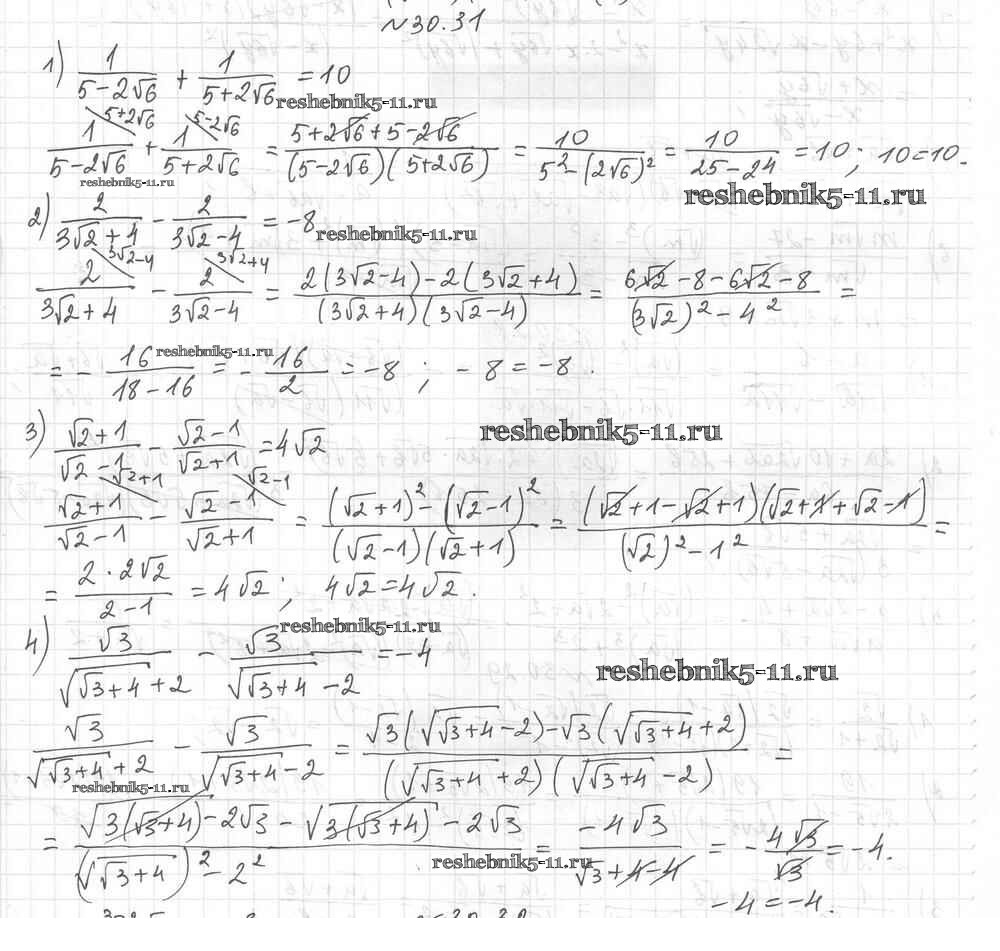 №30.31
1) 1/(5-2√6) + 1/(5+2√6) = 10
reshebnik5-11.ru
5+2√6 5-2√6
1/(5-2√6) + 1/(5+2√6) = (5+2√6+5-2√6)/((5-2√6)(5+2√6)) = 10/(5²-(2√6)²) = 10/(25-24) = 10; 10=10.
reshebnik5-11.ru
reshebnik5-11.ru
2) 2/(3√2+4) - 2/(3√2-4) = -8
reshebnik5-11.ru
3√2-4 3√2+4
2/(3√2+4) - 2/(3√2-4) = (2(3√2-4)-2(3√2+4))/((3√2+4)(3√2-4)) = (6√2-8-6√2-8)/((3√2)²-4²) =
reshebnik5-11.ru
= - 16/(18-16) = - 16/2 = -8; -8=-8.
3) (√2+1)/(√2-1) - (√2-1)/(√2+1) = 4√2
reshebnik5-11.ru
√2+1 √2-1
(√2+1)/(√2-1) - (√2-1)/(√2+1) = ((√2+1)²-(√2-1)²)/((√2-1)(√2+1)) = ((√2+1-√2+1)(√2+1+√2-1))/((√2)²-1²) =
= (2·2√2)/(2-1) = 4√2; 4√2=4√2.
reshebnik5-11.ru
4) √3/(√(√3+4)+2) - √3/(√(√3+4)-2) = -4
reshebnik5-11.ru
√3/(√(√3+4)+2) - √3/(√(√3+4)-2) = (√3(√(√3+4)-2)-√3(√(√3+4)+2))/((√(√3+4)+2)(√(√3+4)-2)) =
reshebnik5-11.ru
= (√(3(√3+4))-2√3-√(3(√3+4))-2√3)/((√(√3+4))²-2²) = (-4√3)/(√3+4-4) = - 4√3/√3 = -4.
reshebnik5-11.ru
-4=-4.